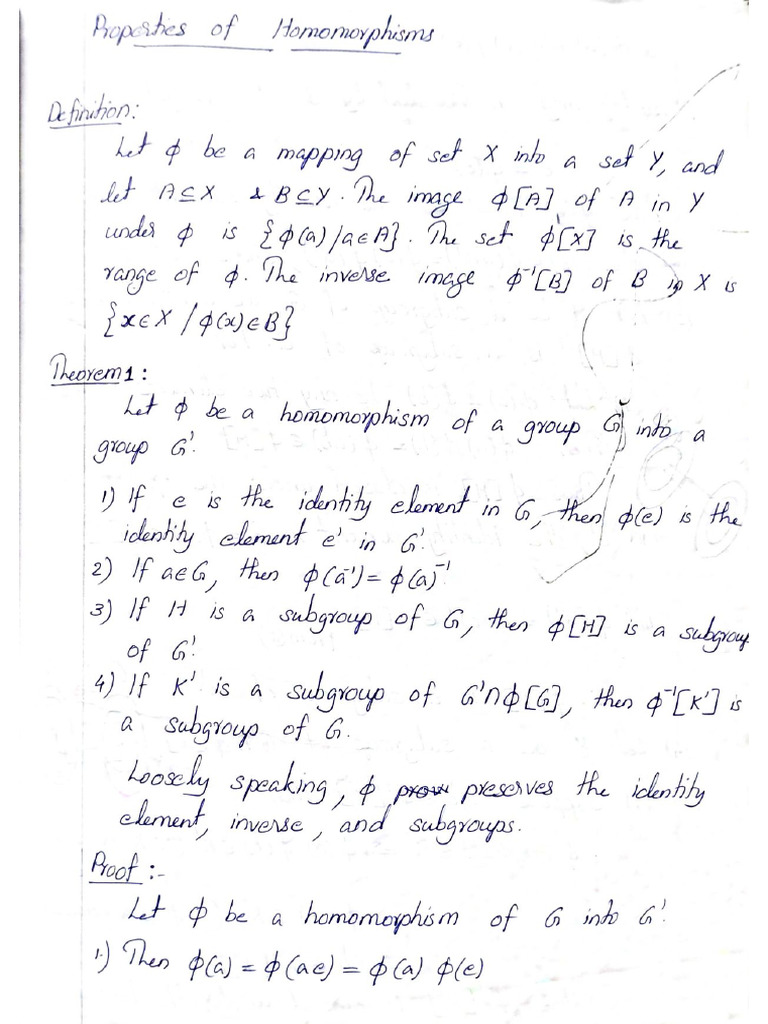 Properties of Homomorphisms
Definition:
Let ϕ be a mapping of set X into a set Y, and
let A⊆X & B⊆Y. The image ϕ[A] of A in Y
under ϕ is {ϕ(a)/a∈A}. The set ϕ[X] is the
range of ϕ. The inverse image ϕ⁻¹[B] of B in X is
{x∈X / ϕ(x)∈B}
Theorem 1:
Let ϕ be a homomorphism of a group G into a
group G'.
1) If e is the identity element in G, then ϕ(e) is the
identity element e' in G'.
2) If a∈G, then ϕ(a⁻¹) = ϕ(a)⁻¹
3) If H is a subgroup of G, then ϕ[H] is a subgroup
of G'.
4) If K' is a subgroup of G'∩ϕ[G], then ϕ⁻¹[K'] is
a subgroup of G.
Loosely speaking, ϕ preserves the identity
element, inverse, and subgroups.
Proof :-
Let ϕ be a homomorphism of G into G'.
1.) Then ϕ(a) = ϕ(ae) = ϕ(a) ϕ(e)